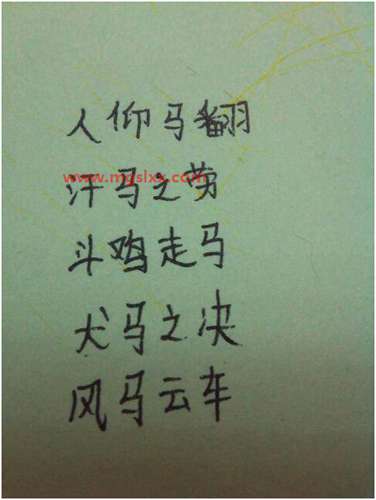 人仰马翻
www.mgslxx.com
汗马之劳
斗鸡走马
犬马之决
风马云车